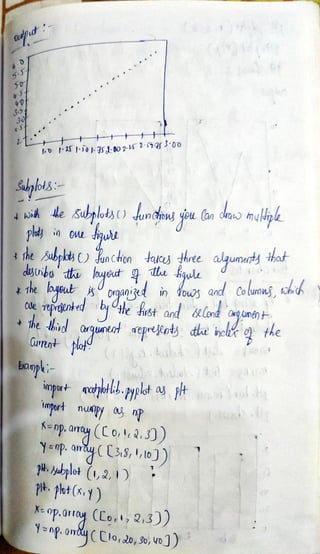 output :-
6.0
5.5
5.0
4.5
4.0
3.5
3.0
2.5
1.0 1.25 1.50 1.75 2.00 2.25 2.50 2.75 3.00
Subplots:-
* with the subplots() functions you can draw multiple
plots in one figure
* The subplots() function takes three alguments that
describs the layout of the figure
* the layout is organized in rows and columns, which
are represented by the first and second argument.
* the third argument represents the index of the
current plot
Example:-
import matplotlib.pyplot as plt
import numpy as np
x=np.array([0,1,2,3])
y=np.array([3,8,1,10])
plt.subplot(1,2,1)
plt.plot(x,y)
x=np.array([0,1,2,3])
y=np.array([10,20,30,40])